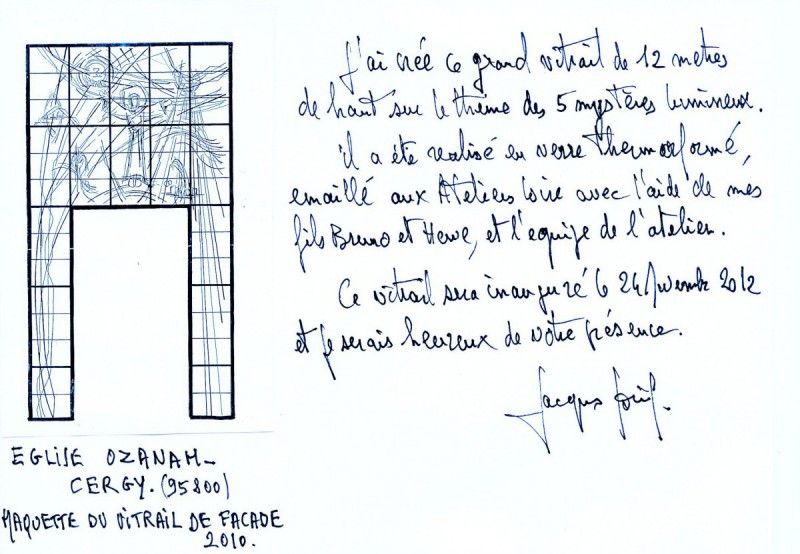 J'ai créé ce grand vitrail de 12 mètres
de haut sur le thème des 5 mystères lumineux.
il a été réalisé en verre thermoformé,
emaillé aux Ateliers Loire avec l'aide de mes
fils Bruno et Hervé, et l'equipe de l'atelier.
Ce vitrail sera inauguré le 24 Novembre 2012
et je serais heureux de votre présence.
Jacques Loire.
EGLISE OZANAM_
CERGY. (95800)
MAQUETTE DU VITRAIL DE FACADE
2010.